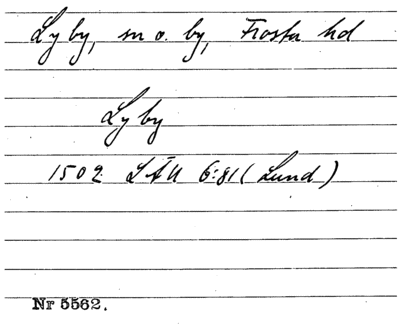 Lyby, sn o. by, Frosta hd
Lyby
1502 LÄU 6:81 (Lund)
Nr 5562.